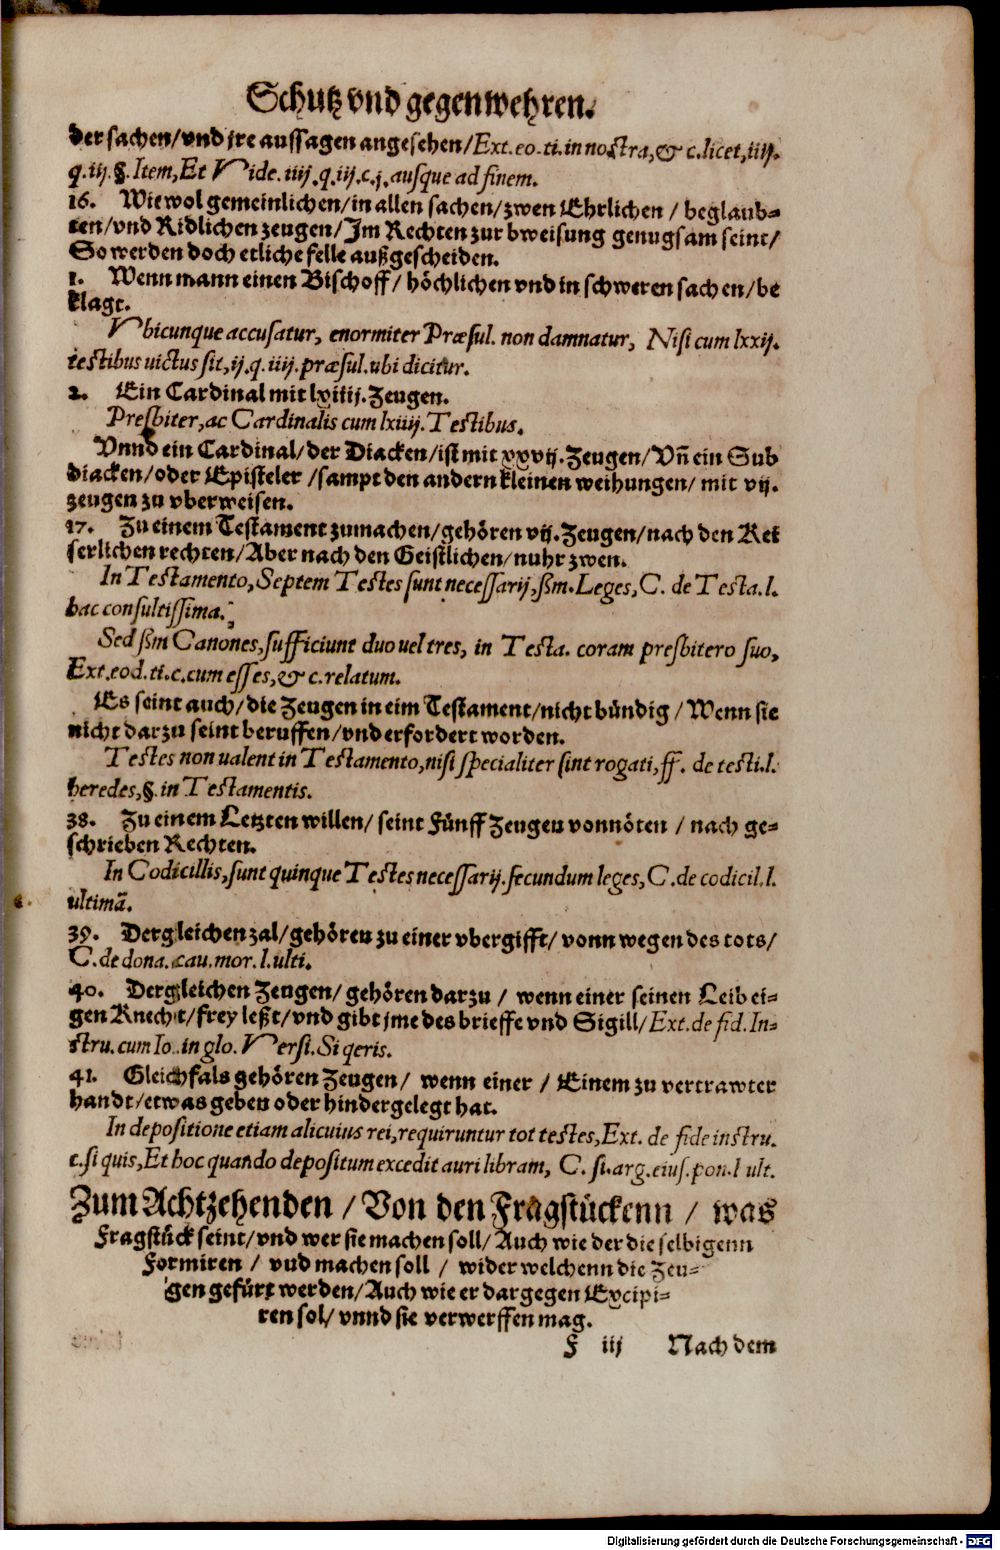 Schutz vnd gegenwehren.
der sachen/vnd jre aussagen angesehen/Ext.eo.ti.in nostra,& c.licet,iiij.
q.iij.§.Item,Et Vide.iiij.q.iij.c.j.ausque ad finem.
16. Wiewol gemeinlichen/in allen sachen/zwen Ehrlichen / beglaub-
ten/vnd Ridlichen zeugen/Im Rechten zur bweisung genugsam seint/
So werden doch etliche felle außgescheiden.
1. Wenn mann einen Bischoff/ höchlichen vnd in schweren sachen/be
klagt.
Vbicunque accusatur, enormiter Præsul. non damnatur, Nisi cum lxxij.
testibus uictus sit,ij.q.iiij.præsul.ubi dicitur.
2. Ein Cardinal mit lxiiij.Zeugen.
Presbiter,ac Cardinalis cum lxiiij.Testibus.
Vnnd ein Cardinal/der Diacken/ist mit xxvij.Zeugen/Vñ ein Sub
diacken/oder Episteler /sampt den andern kleinen weihungen/ mit vij.
zeugen zu vberweisen.
17. Zu einem Testament zumachen/gehören vij.Zeugen/nach den Kei
serlichen rechten/Aber nach den Geistlichen/nuhr zwen.
In Testamento,Septem Testes sunt necessarij,ßm.Leges,C. de Testa.l.
hac consultissima.
Sed ßm Canones,sufficiunt duo uel tres, in Testa. coram presbitero suo,
Ext.eod.ti.c.cum esses,& c.relatum.
Es seint auch/die Zeugen in eim Testament/nicht bündig /Wenn sie
nicht darzu seint beruffen/vnd erfordert worden.
Testes non ualent in Testamento,nisi specialiter sint rogati,ff. de testi.l.
heredes,§.in Testamentis.
38. Zu einem Letzten willen/ seint Fünff Zeugen vonnöten / nach ge-
schrieben Rechten.
In Codicillis,sunt quinque Testes necessarij.secundum leges,C.de codicil.l.
ultimã.
39. Dergleichen zal/gehören zu einer vbergifft/ vonn wegen des tots/
C.de dona.cau.mor.l.ulti.
40. Dergleichen Zeugen/ gehören darzu / wenn einer seinen Leib ei-
gen Knecht/frey leßt/vnd gibt jme des brieffe vnd Sigill/Ext.de fid.In-
stru.cum Io..in glo. Versi.Si qeris.
41. Gleichfals gehören Zeugen/ wenn einer / Einem zu vertrawter
handt/etwas geben oder hindergelegt hat.
In depositione etiam alicuius rei,requiruntur tot testes,Ext. de fide instru.
c.si quis,Et hoc quando depositum excedit auri libram, C. si.arg.eius.pon.l ult.
Zum Achtzehenden / Von den Fragstückenn / was
Fragstück seint/vnd wer sie machen soll/Auch wie der die selbigenn
Formiren / vnd machen soll / wider welchenn die Zeu-
gen gefürt werden/Auch wie er dargegen Excipi-
ren sol/ vnnd sie verwerffen mag.
F iij Nach dem
Digitalisierung gefördert durch die Deutsche Forschungsgemeinschaft - DFG